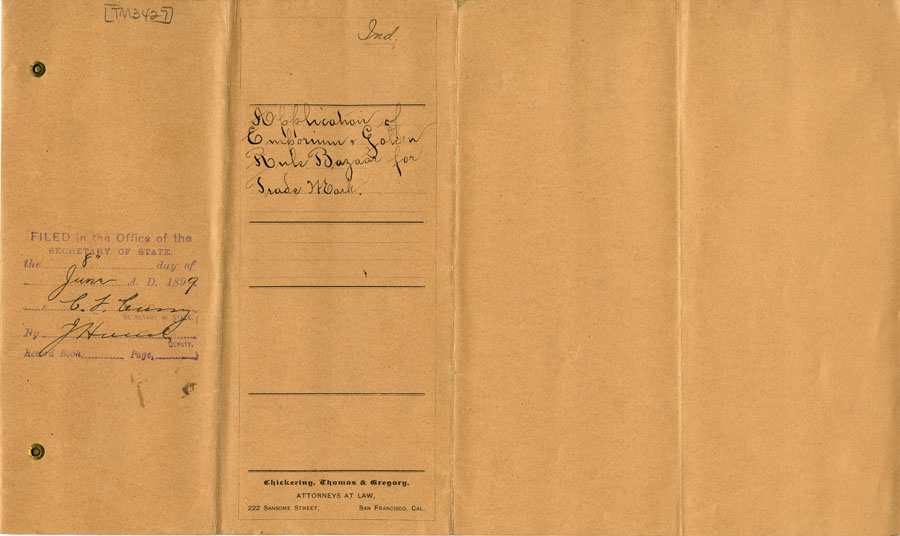 [TM3427]
Ind.
Application of
Emporium & Golden
Rule Bazaar for
Trade Mark.
FILED in the Office of the
SECRETARY OF STATE.
the 8" day of
June A. D. 1899
C. F. Curry
Secretary of State.
By J Hoesch
Deputy.
Record Book Page,
Chickering, Thomas & Gregory,
ATTORNEYS AT LAW,
222 SANSOME STREET, SAN FRANCISCO, CAL.